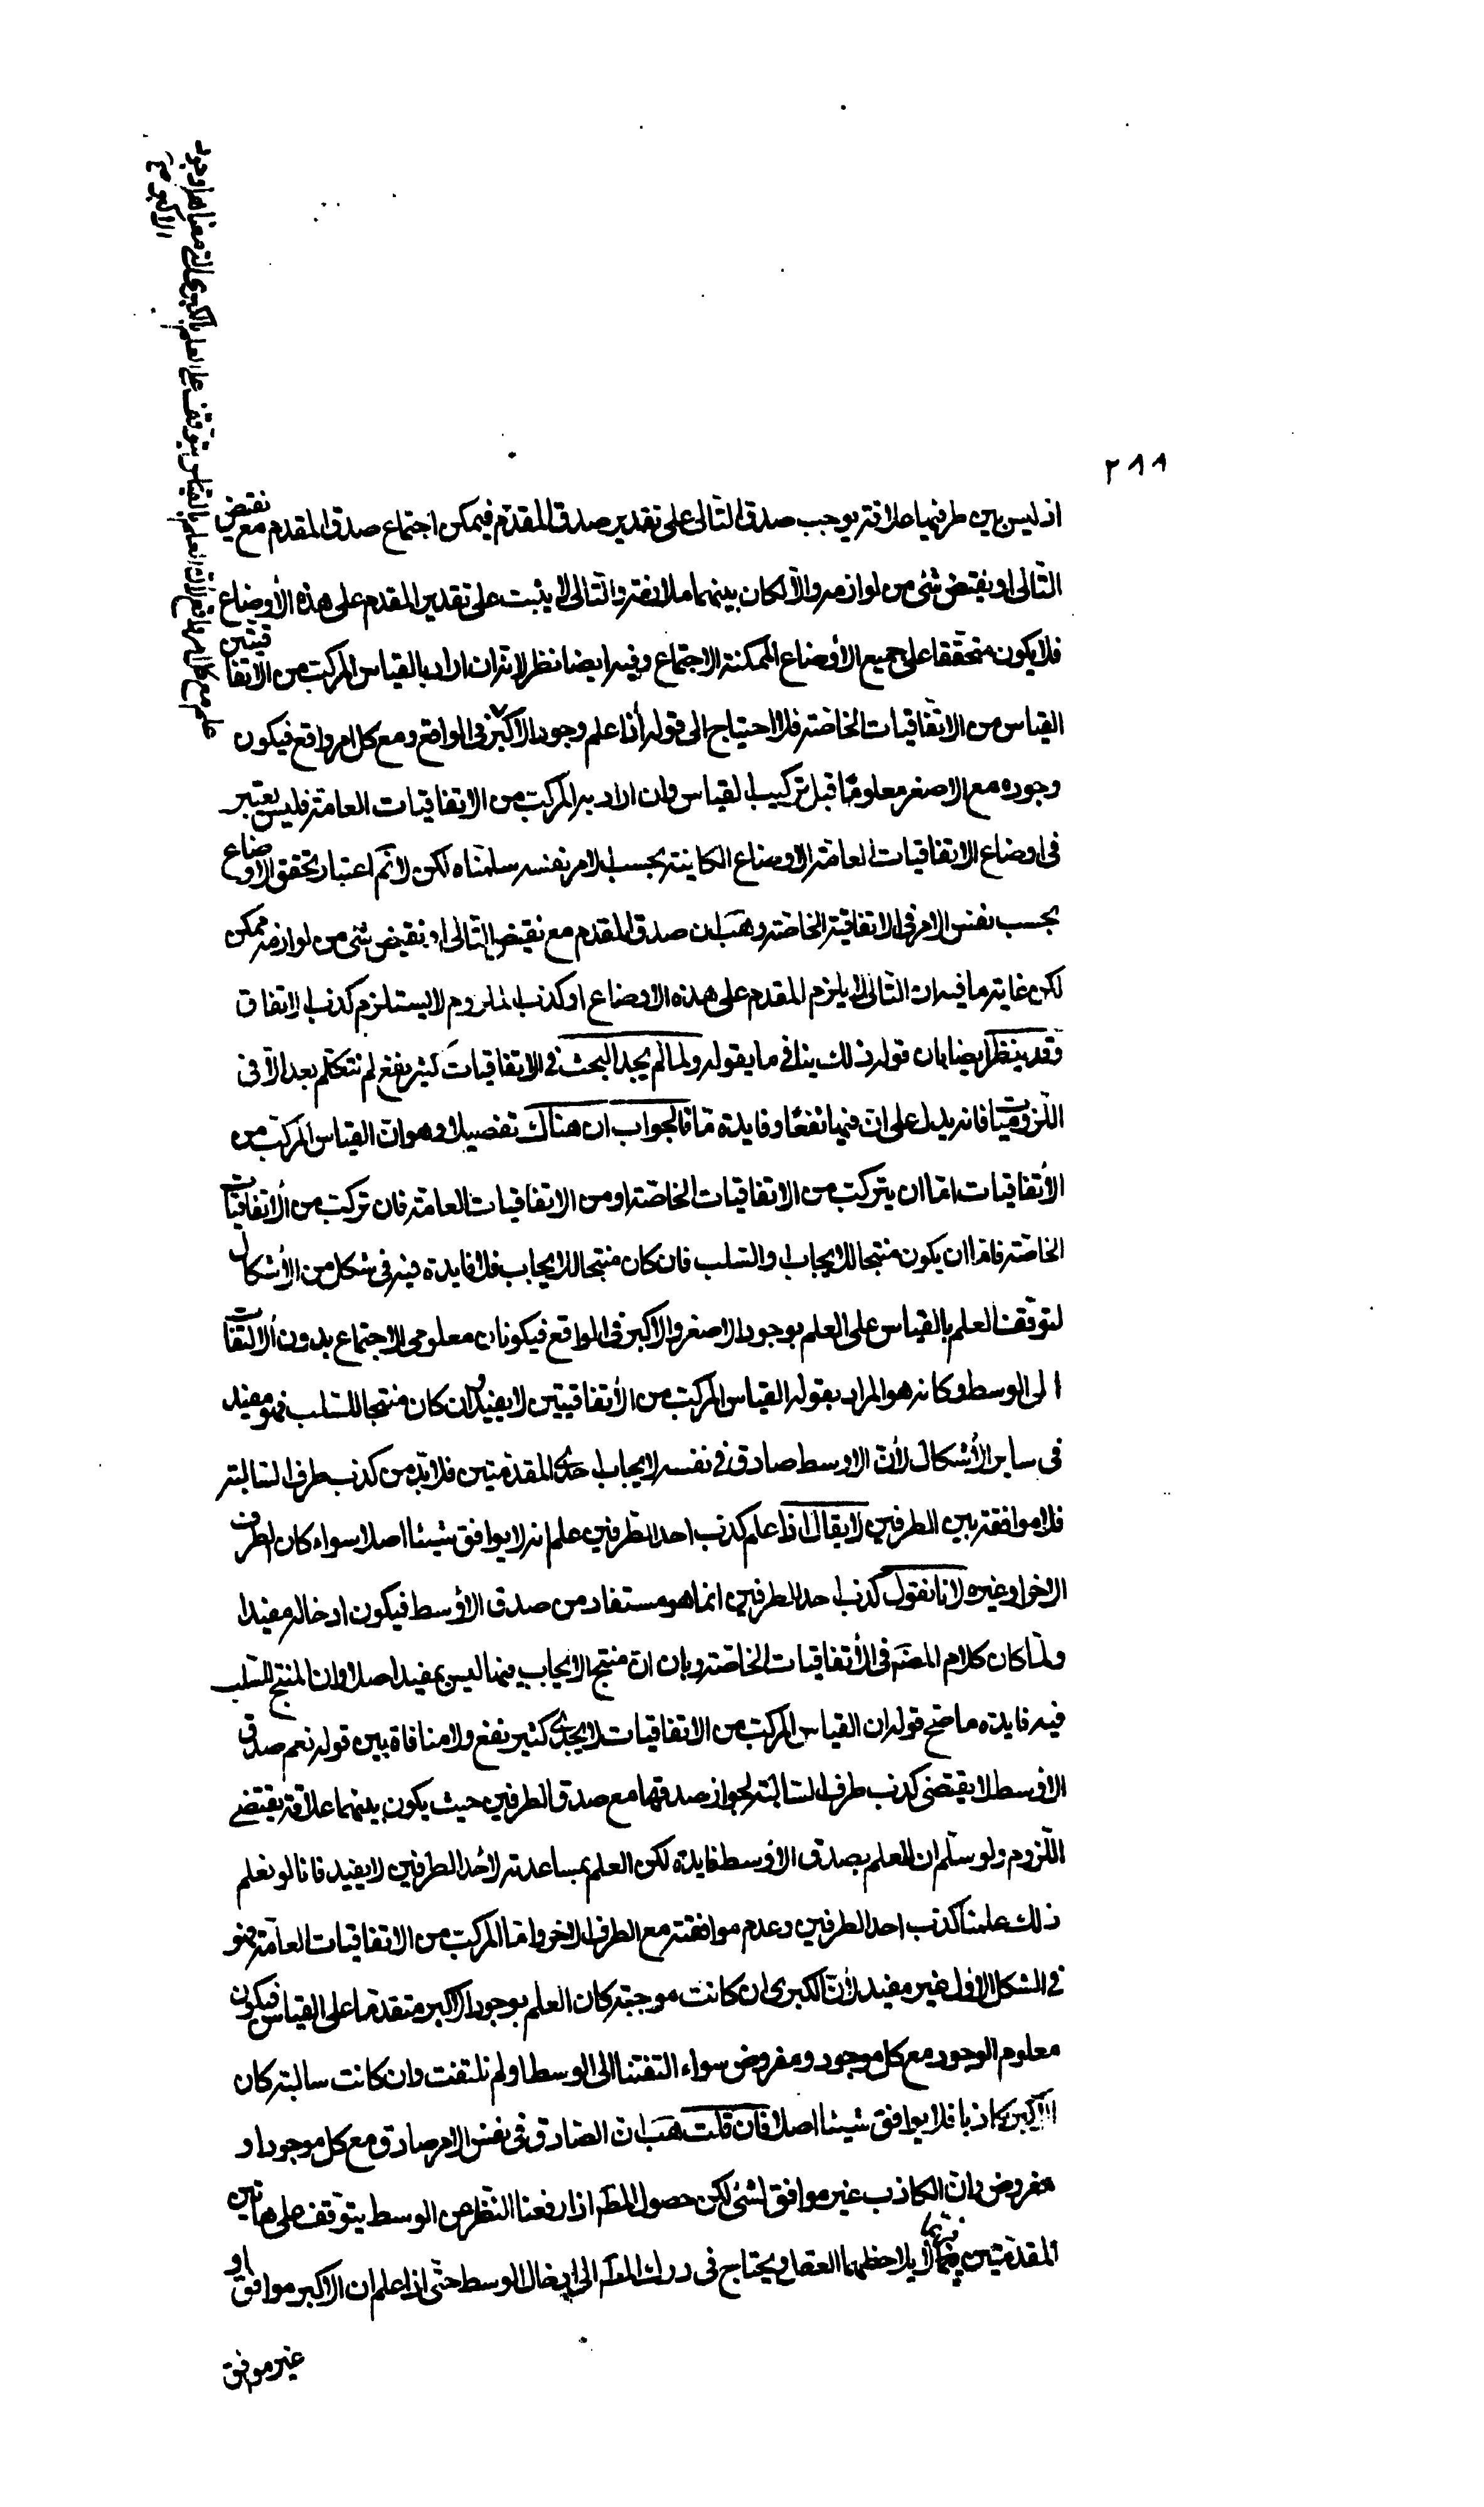 ٢٨٨
اذ ليس بين طرفيها علاقة يوجب صدق التالى على تقدير صدق المقدّم فيمكن اجتماع صدق المقدم مع نقيض
التّالى او نقيض شئ من لوازمه والّا لكان بينهما ملازمة والتّالى لا يثبت على تقدير المقدم على هذه الأوضاع
فلا يكون متحقّقا على جميع الأوضاع الممكنة الاجتماع وفيه ايضا نظر لانّه ان اراد بالقياس المركب من الاتفاقيتين
القياس من الاتّفاقيات الخاصّة فلا احتياج الى قوله اذا علم وجود الاكبر فى الواقع ومع كل امر واقع فيكون
وجوده مع الاصغر معلومًا قبل تركيب القياس وان اراد به المركب من الاتفاقيات العامّة فليس يعتبر
فى اوضاع الاتفاقيات العامّة الاوضاع الكاينة بحسب الامر نفسه سلّمناه لكن لانم اعتبار تحقق الاوضاع
بحسب نفس الامر فى الاتفاقية الخاصّة وهَب ان صدق المقدم مع نقيض التالى او نقيض شئ من لوازمه ممكن
لكن غاية ما فيه ان التّالى لا يلزم المقدم على هذه الاوضاع او كذب الملزوم لا يستلزم كذب الاتفاق
وقد ينظر ايضا بان قوله ذلك ينافى ما يقوله ولما لم يجد البحث فى الاتفاقيات كثير نفع لم نتكلّم بعد الّا فى
اللّزوميات فانه يدل على انّ فيها نفعًا وفايدة مّا فالجواب ان هناك تفصيلا وهو انّ القياس المركّب من
الأتفاقيات امّا ان يتركب من الاتفاقيات الخاصّة او من الاتفاقيات العامّة فان تركب من الأتفاقيات
الخاصّة فامّا ان يكون منتجا للايجاب او السّلب فان كان منتجا للايجاب فلا فايدة فيه فى شكل من الأشكال
لتوقّف العلم بالقياس على العلم بوجود الاصغر والاكبر فى الواقع فيكونان معلومى الاجتماع بدون الالتفات
الى الوسط وكانه هو المراد بقوله القياس المركب من الأتفاقيتين لا يفيد وان كان منتجا للسّلب فهو مفيد
فى ساير الأشكال لأنّ الاوسط صادق فى نفسه لايجاب احدى المقدّمتين فلا بدّ من كذب طرف السّالبة
فلا موافقة بين الطرفين لا يقال اذا علم كذب احد الطّرفين علم انه لا يوافق شيئا اصلا سواء كان الطرف
الاخر او غيره لانا نقول كذب احد الطرفين انما هو مستفاد من صدق الأوسط فيكون ادخاله مفيدا
ولمّا كان كلام المصَ فى الأتفاقيات الخاصّة وبان انّ منتج الايجاب فيها ليس بمفيد اصلا وان المنتج للسّلب
فيه فايدة ما صَحّ قوله ان القياس المركب من الاتفاقيات لا يجدى كثير نفع ولا منافاة بين قوله نعم صدق
الاوسط لا يقتضى كذب طرف السّالبة لجواز صدقها مع صدق الطرفين حيث يكون بينهما علاقة يقتضى
اللّزوم ولو سلّم ان للعلم بصدق الاوسط فايدة لكن العلم بمساعدته لأحد الطرفين لا يفيد فانا لو نعلم
ذلك علمنا كذب احد الطرفين وعدم موافقته مع الطرف الاخر وامّا المركب من الاتفاقيات العامّة فهو
فى الشكل الاوّل غير مفيد لأنّ الكبرى ان كانت موجبة كان العلم بوجود الاكبر متقدّما على القياس فيكون
معلوم الوجود مع كل موجود ومفروض سواء التفتنا الى الوسط او لم نلتفت وان كانت سالبة كان
الاكبر كاذبا فلا يوافق شيئا اصلا فان قلت هَب ان الصّادق فى نفس الامر صادق مع كل موجود او
مفروض وانّ الكاذب غير موافق لشئ لكن حصول المطَ اذا رفعنا النّظر عن الوسط يتوقّف على هاتين
المقدّمتين فربّما لا يلاحظهما العقل ويحتاج فى درك المطَ الى ادخال الوسط حتّى اذا علم ان الاكبر موافق او
غير موافق
علم مع كل امر واقع لانّ العلم بالقياس يتوقف على العلم بالكبرى التى معناها وجود
الاكبر